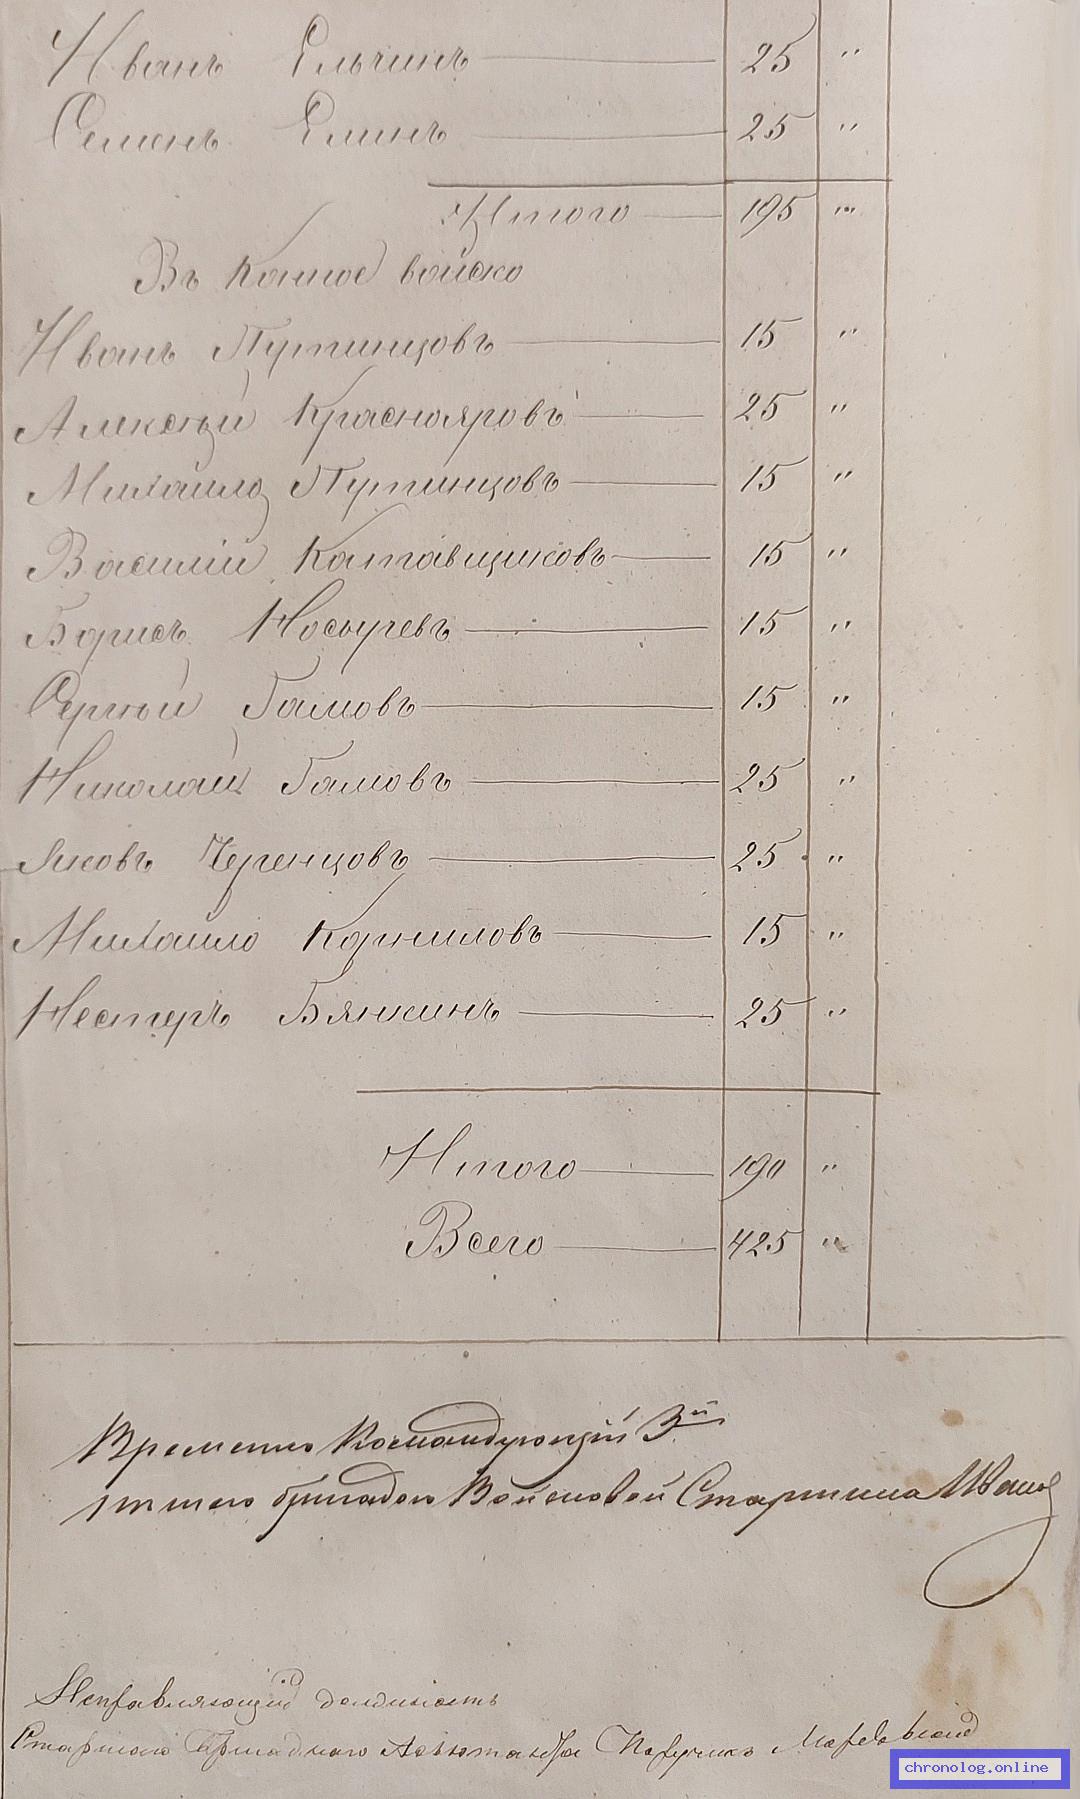 Иванъ Ельчинъ 25 "
Семенъ Елинъ 25 "
Итого 195 "
Въ Конное войско
Иванъ Путинцовъ 15 "
Алексѣй Краснояровъ 25 "
Михайло Путинцовъ 15 "
Василій Катавщиковъ 15 "
Борисъ Носыревъ 15 "
Сергѣй Гамовъ 15 "
Николай Гамовъ 25 "
Яковъ Черенцовъ 25 "
Михайло Корниловъ 15 "
Нестеръ Бянкинъ 25 "
Итого 190 "
Всего 425 "
Временно Командующій 3й
пѣшею бригадою Войсковой Старшина
Исправляющій должность
Старшаго Бригаднаго Адъютанта Поручикъ
chronolog.online